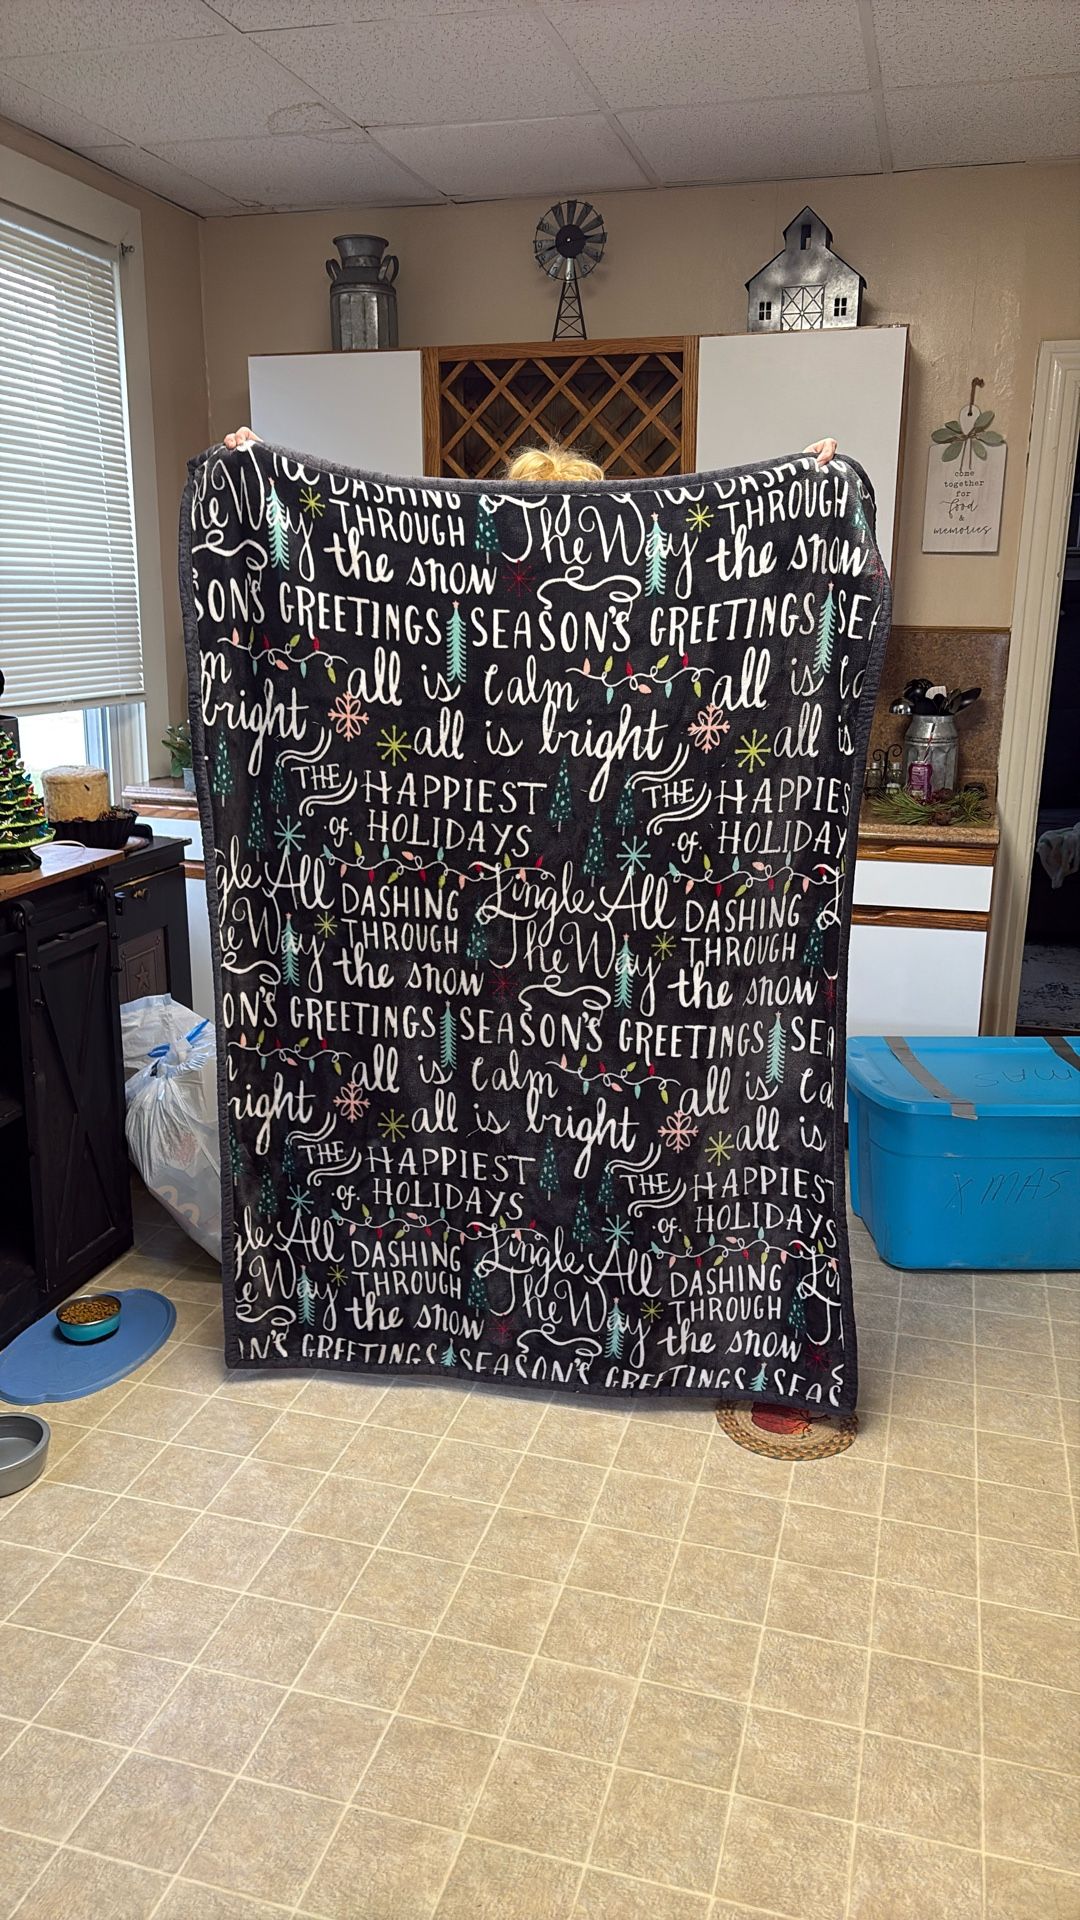 come
together
for
food
&
memories
DASHING
THROUGH
THROUGH
The Way
the snow
the snow
SON'S GREETINGS SEASON'S GREETINGS SEA
all is calm
all is
bright
all is bright
all is
THE HAPPIEST
THE HAPPIES
of HOLIDAYS
of HOLIDAY
gle All DASHING Jingle All DASHING
THROUGH The Way THROUGH
the snow
the snow
ON'S GREETINGS SEASON'S GREETINGS SEA
all is calm
all is ca
right
all is bright
all is
THE HAPPIEST
THE HAPPIEST
of HOLIDAYS
of HOLIDAYS
gle All DASHING Jingle All DASHING Ji
THROUGH The Way THROUGH
the snow
the snow
N'S GREETINGS SEASON'S GREETINGS SEAS
XMAS
XMAS